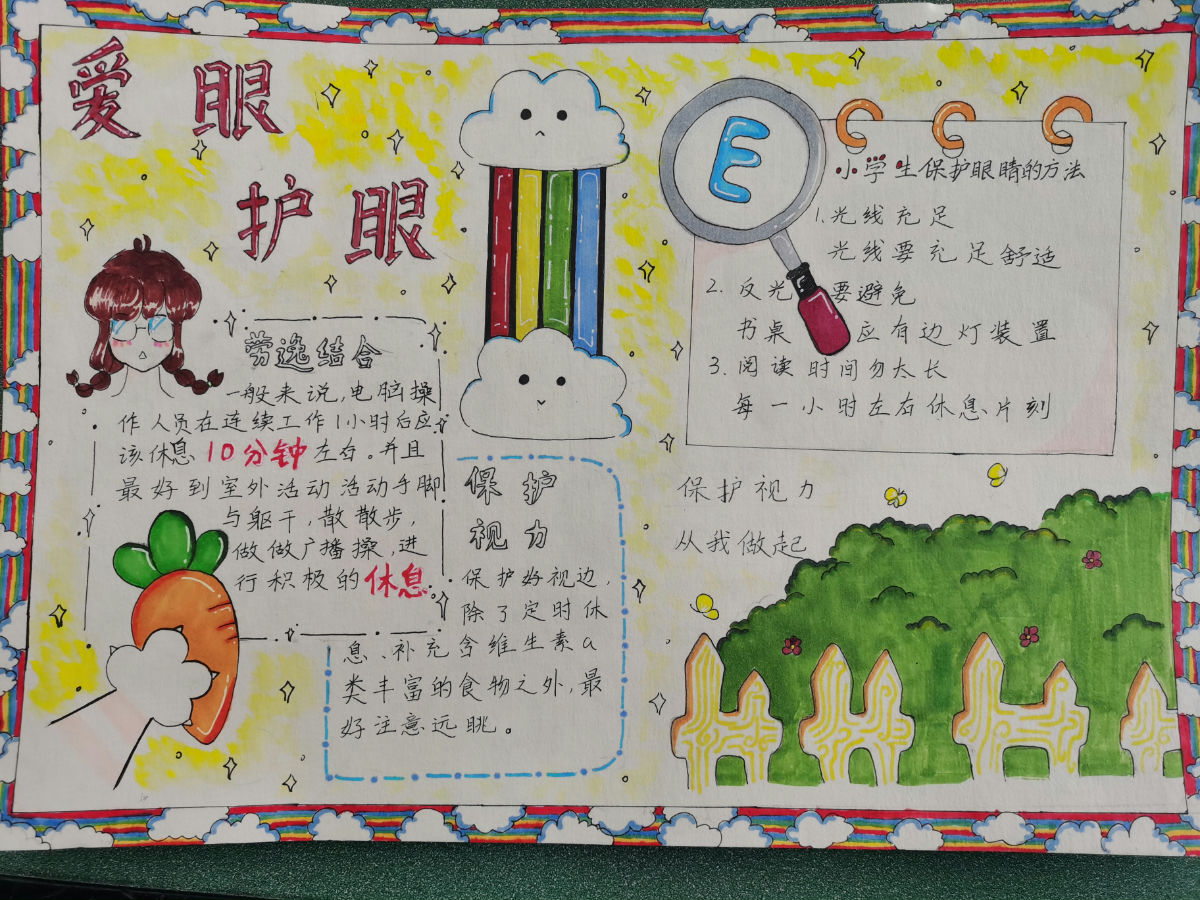 爱眼
护眼
劳逸结合
一般来说，电脑操
作人员在连续工作1小时后应
该休息10分钟左右。并且
最好到室外活动活动手脚
与躯干，散散步，
做做广播操，进
行积极的休息。
保护
视力
保护好视边，
除了定时休
息、补充含维生素a
类丰富的食物之外，最
好注意远眺。
E
小学生保护眼睛的方法
1.光线充足
光线要充足舒适
2.反光 要避免
书桌 应有边灯装置
3.阅读时间勿太长
每一小时左右休息片刻
保护视力
从我做起